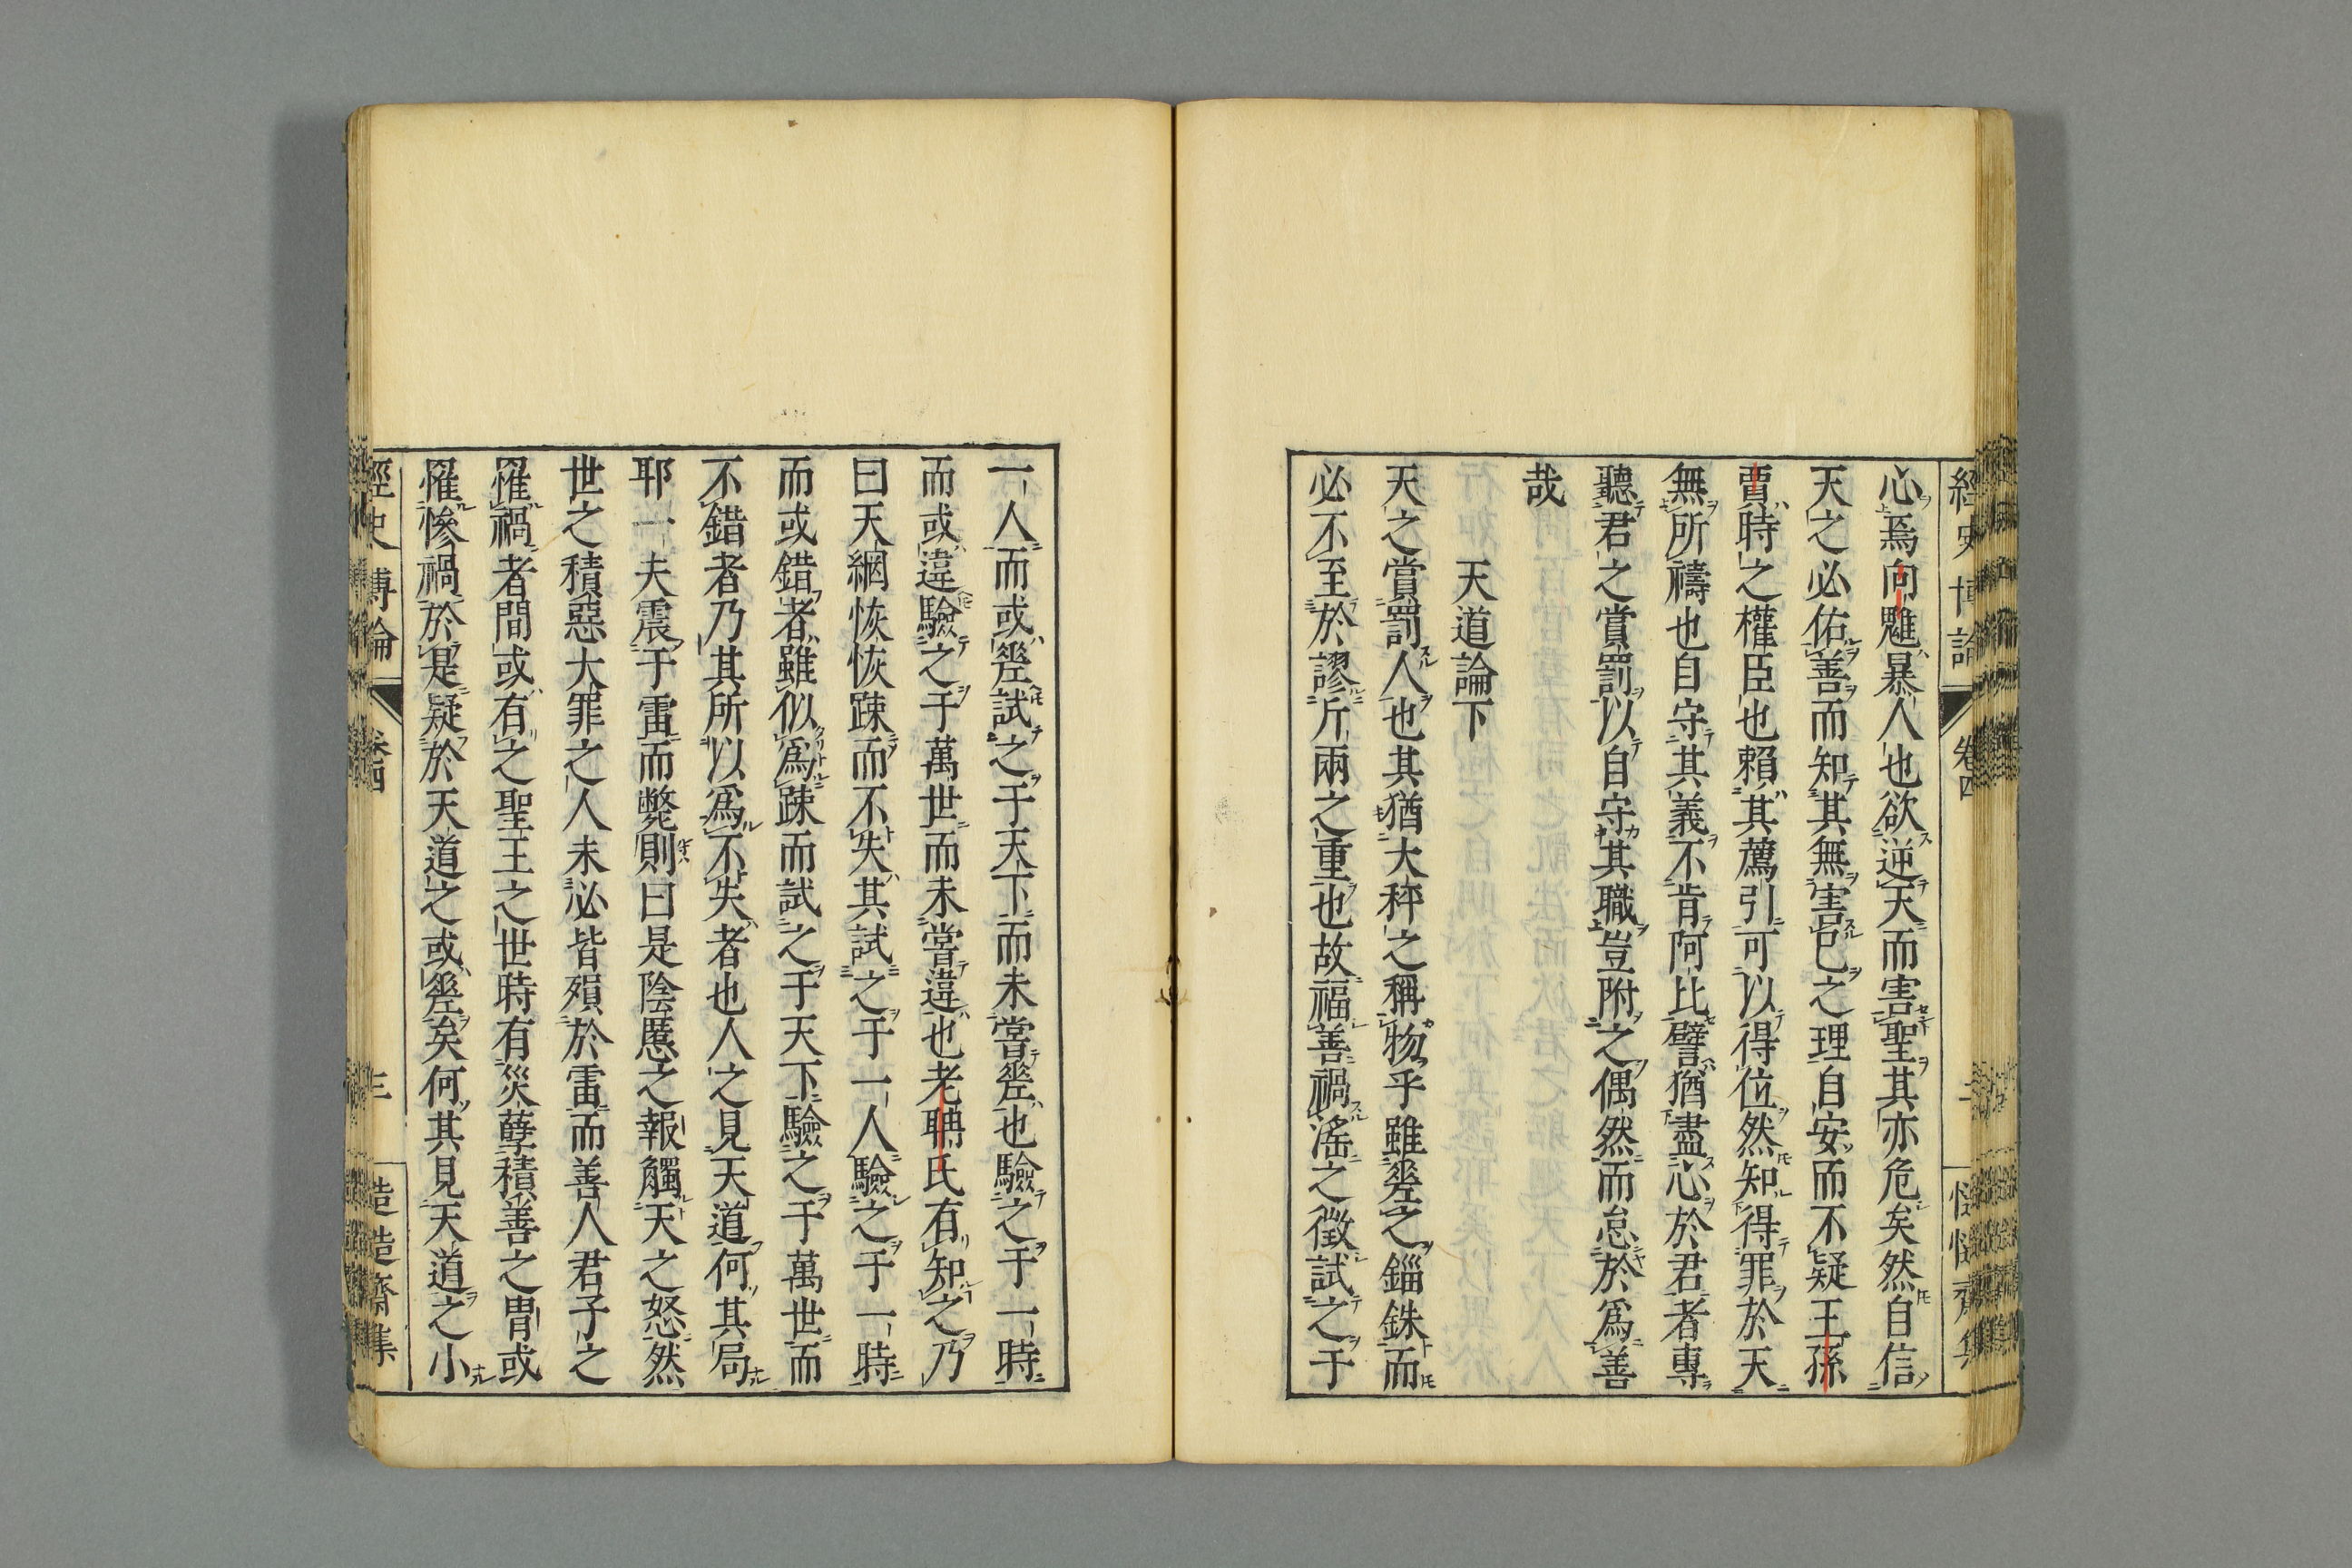 經史博論 卷四
心焉向魋暴人也欲逆天而害聖其亦危矣然自信
天之必佑善而知其無害己之理自安而不疑王孫
賈時之權臣也賴其薦引可以得位然知得罪於天
無所禱也自守其義不肯阿比譬猶盡心於君者專
聽君之賞罰以自守其職豈附之偶然而怠於爲善
哉
天道論下
天之賞罰人也其猶大秤之稱物乎雖差之錙銖而
必不至於謬斤兩之重也故福善禍淫之徵試之于
一人而或差試之于天下而未嘗差也驗之于一時
而或違驗之于萬世而未嘗違也老聃氏有知之乃
曰天網恢恢踈而不失其試之于一人驗之于一時
而或錯者雖似爲踈而試之于天下驗之于萬世而
不錯者乃其所以爲不失者也人之見天道何其局
耶一夫震于雷而斃則曰是陰慝之報觸天之怒然
世之積惡大罪之人未必皆殞於雷而善人君子之
罹禍者間或有之聖王之世時有災孽積善之冑或
罹慘禍於是疑於天道之或差矣何其見天道之小
經史博論 卷四 三